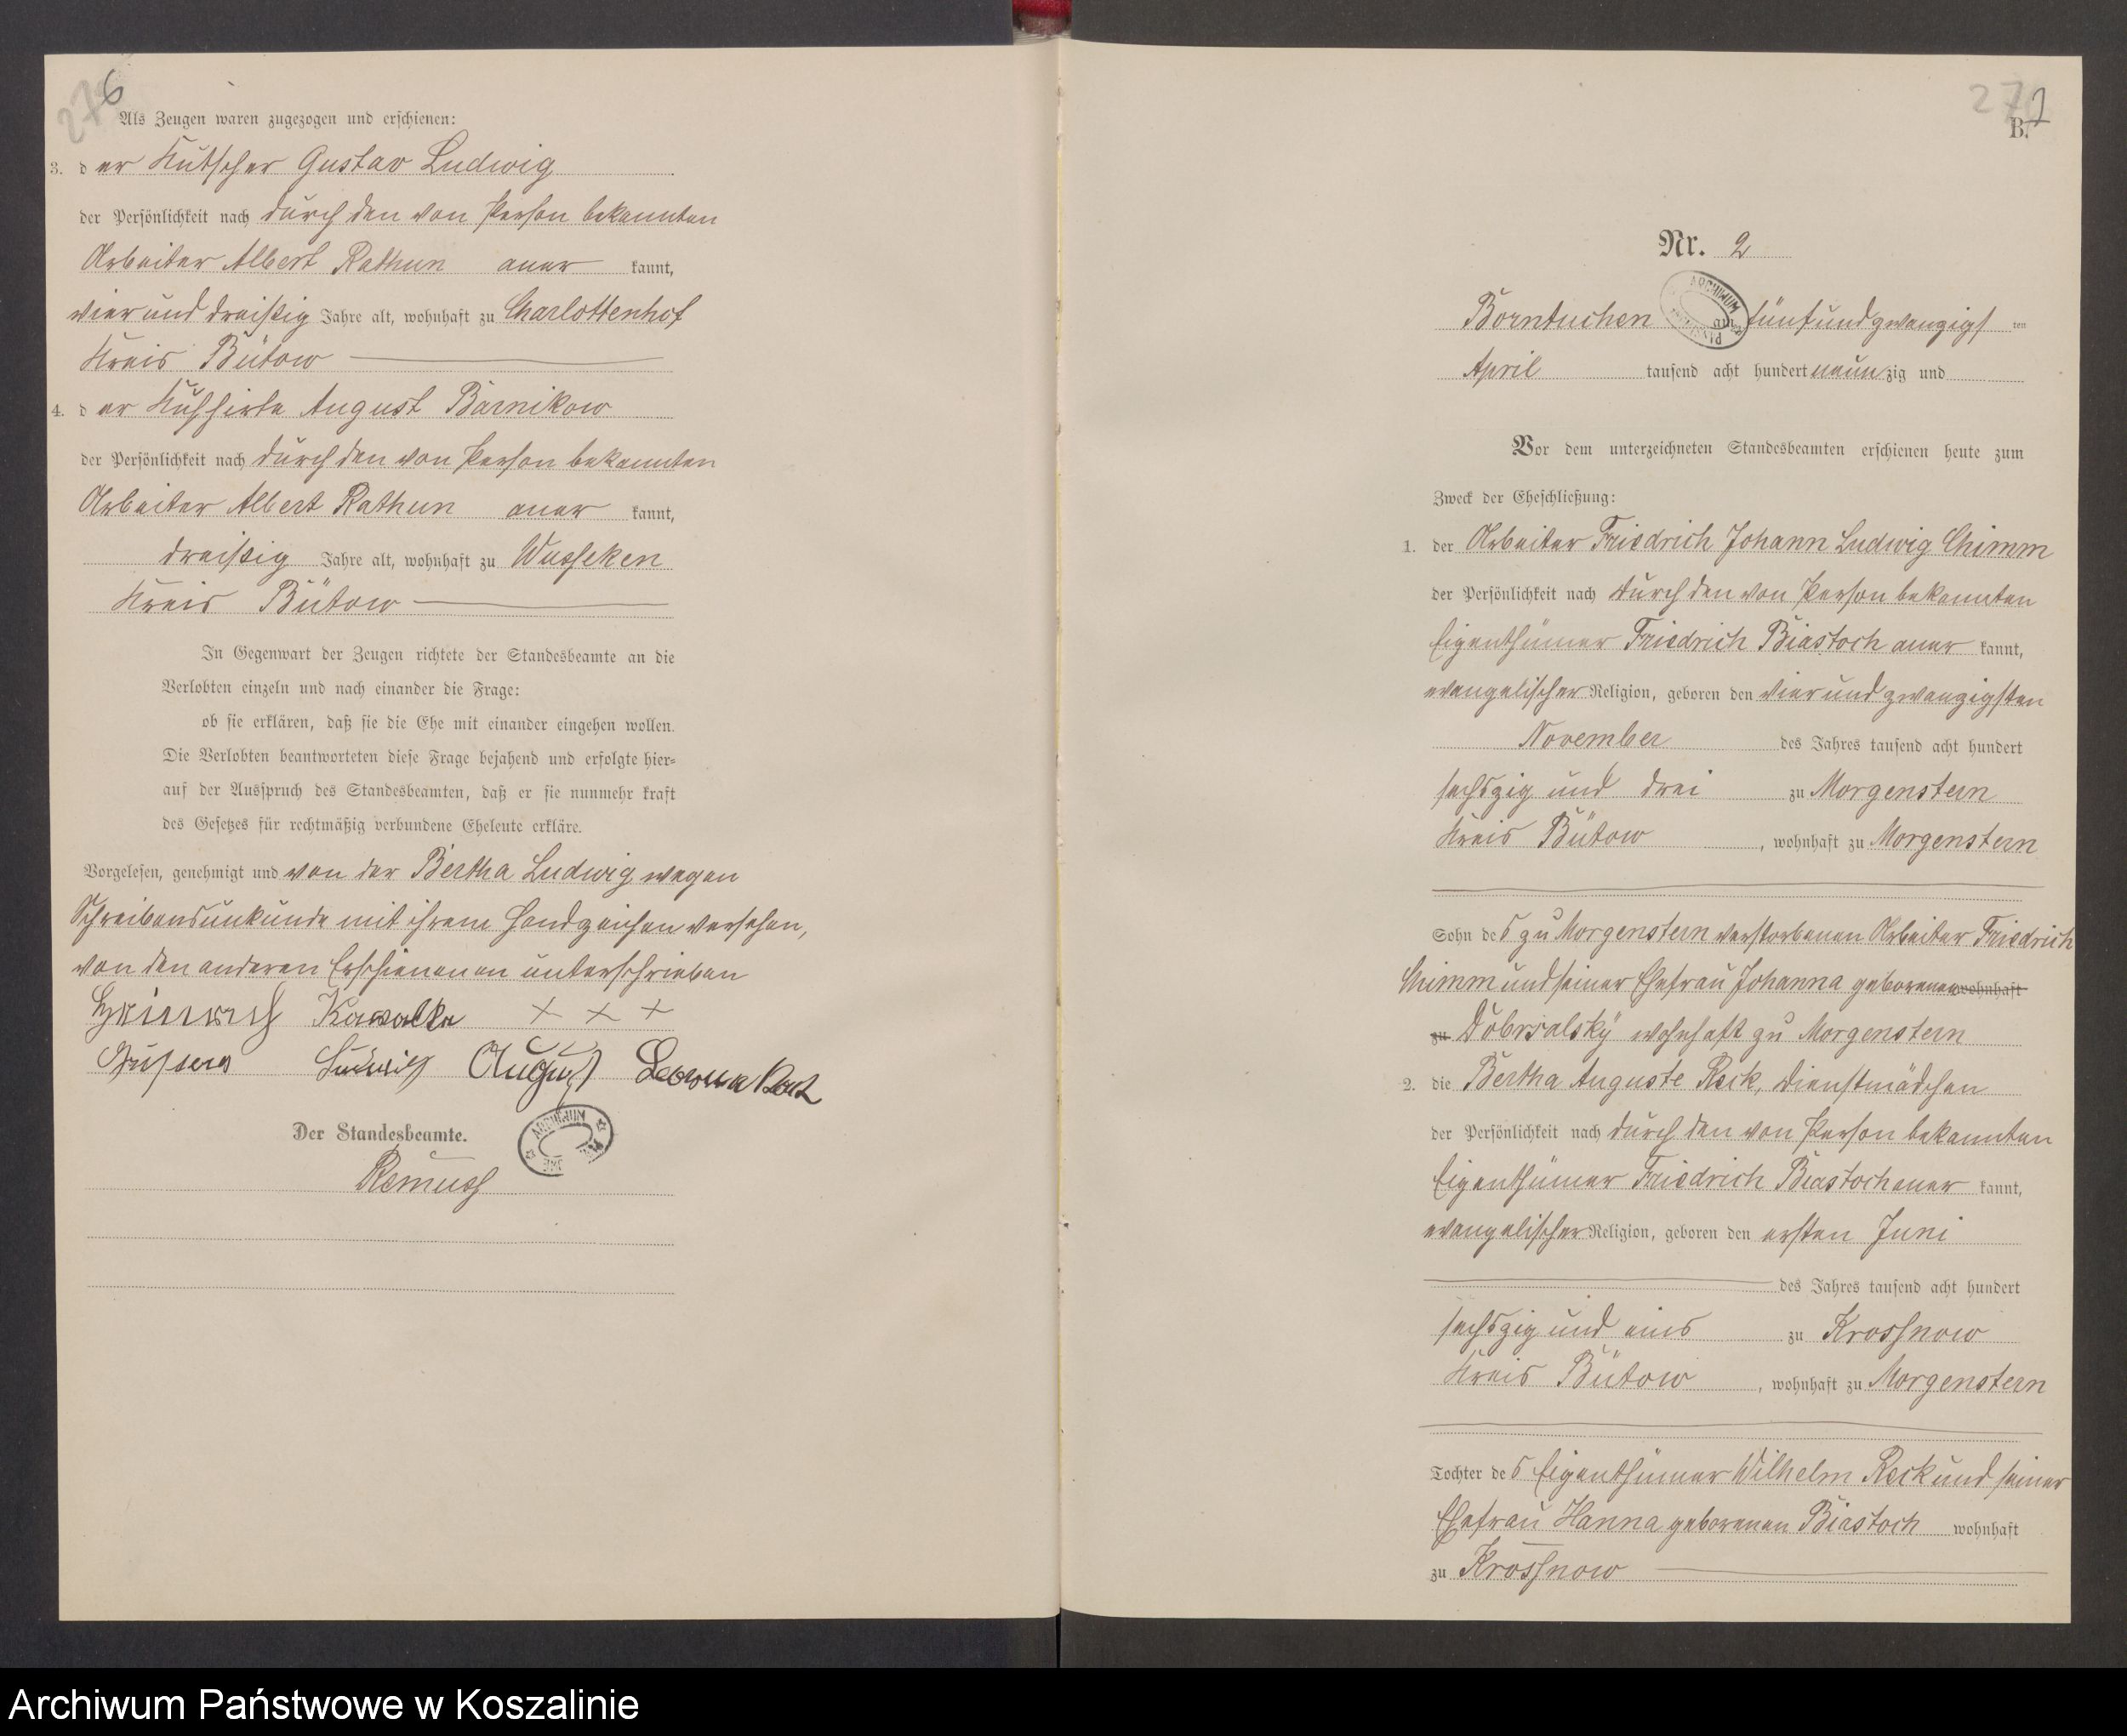 276
Als Zeugen waren zugezogen und erschienen:
3. der Kutscher Gustav Ludwig
der Persönlichkeit nach durch den von Person bekannten
Arbeiter Albert Rathun aner kannt,
vier und dreißig Jahre alt, wohnhaft zu Charlottenhof
Kreis Bütow
4. der Kuhhirte August Barnikow
der Persönlichkeit nach durch den von Person bekannten
Arbeiter Albert Rathun aner kannt,
dreißig Jahre alt, wohnhaft zu Wusseken
Kreis Bütow
In Gegenwart der Zeugen richtete der Standesbeamte an die
Verlobten einzeln und nach einander die Frage:
ob sie erklären, daß sie die Ehe mit einander eingehen wollen.
Die Verlobten beantworteten diese Frage bejahend und erfolgte hier=
auf der Ausspruch des Standesbeamten, daß er sie nunmehr kraft
des Gesetzes für rechtmäßig verbundene Eheleute erkläre.
Vorgelesen, genehmigt und von der Bertha Ludwig wegen
Schreibensunkunde mit ihrem Handzeichen versehen,
von den anderen Erschienenen unterschrieben
Kawalke + + +
Ludwig August
Der Standesbeamte.
Remuss
ARCHIWUM
277
B.
Nr. 2
ARCHIWUM
Borntuchen am fünfundzwanzigsten
April tausend acht hundert neunzig und
Vor dem unterzeichneten Standesbeamten erschienen heute zum
Zweck der Eheschließung:
1. der Arbeiter Friedrich Johann Ludwig Chimm
der Persönlichkeit nach durch den von Person bekannten
Eigenthümer Friedrich Biastoch aner kannt,
evangelischer Religion, geboren den vierundzwanzigsten
November des Jahres tausend acht hundert
sechszig und drei zu Morgenstern
Kreis Bütow, wohnhaft zu Morgenstern
Sohn des zu Morgenstern verstorbenen Arbeiter Friedrich
Chimm und seiner Ehefrau Johanna geborenen wohnhaft
zu Dobrwalsky wohnhaft zu Morgenstern
2. die Bertha Auguste Reck, Dienstmädchen
der Persönlichkeit nach durch den von Person bekannten
Eigenthümer Friedrich Biastoch aner kannt,
evangelischer Religion, geboren den ersten Juni
des Jahres tausend acht hundert
sechszig und eins zu Krossnow
Kreis Bütow, wohnhaft zu Morgenstern
Tochter des Eigenthümer Wilhelm Reck und seiner
Ehefrau Hanna geborenen Biastoch wohnhaft
zu Krossnow
Archiwum Państwowe w Koszalinie